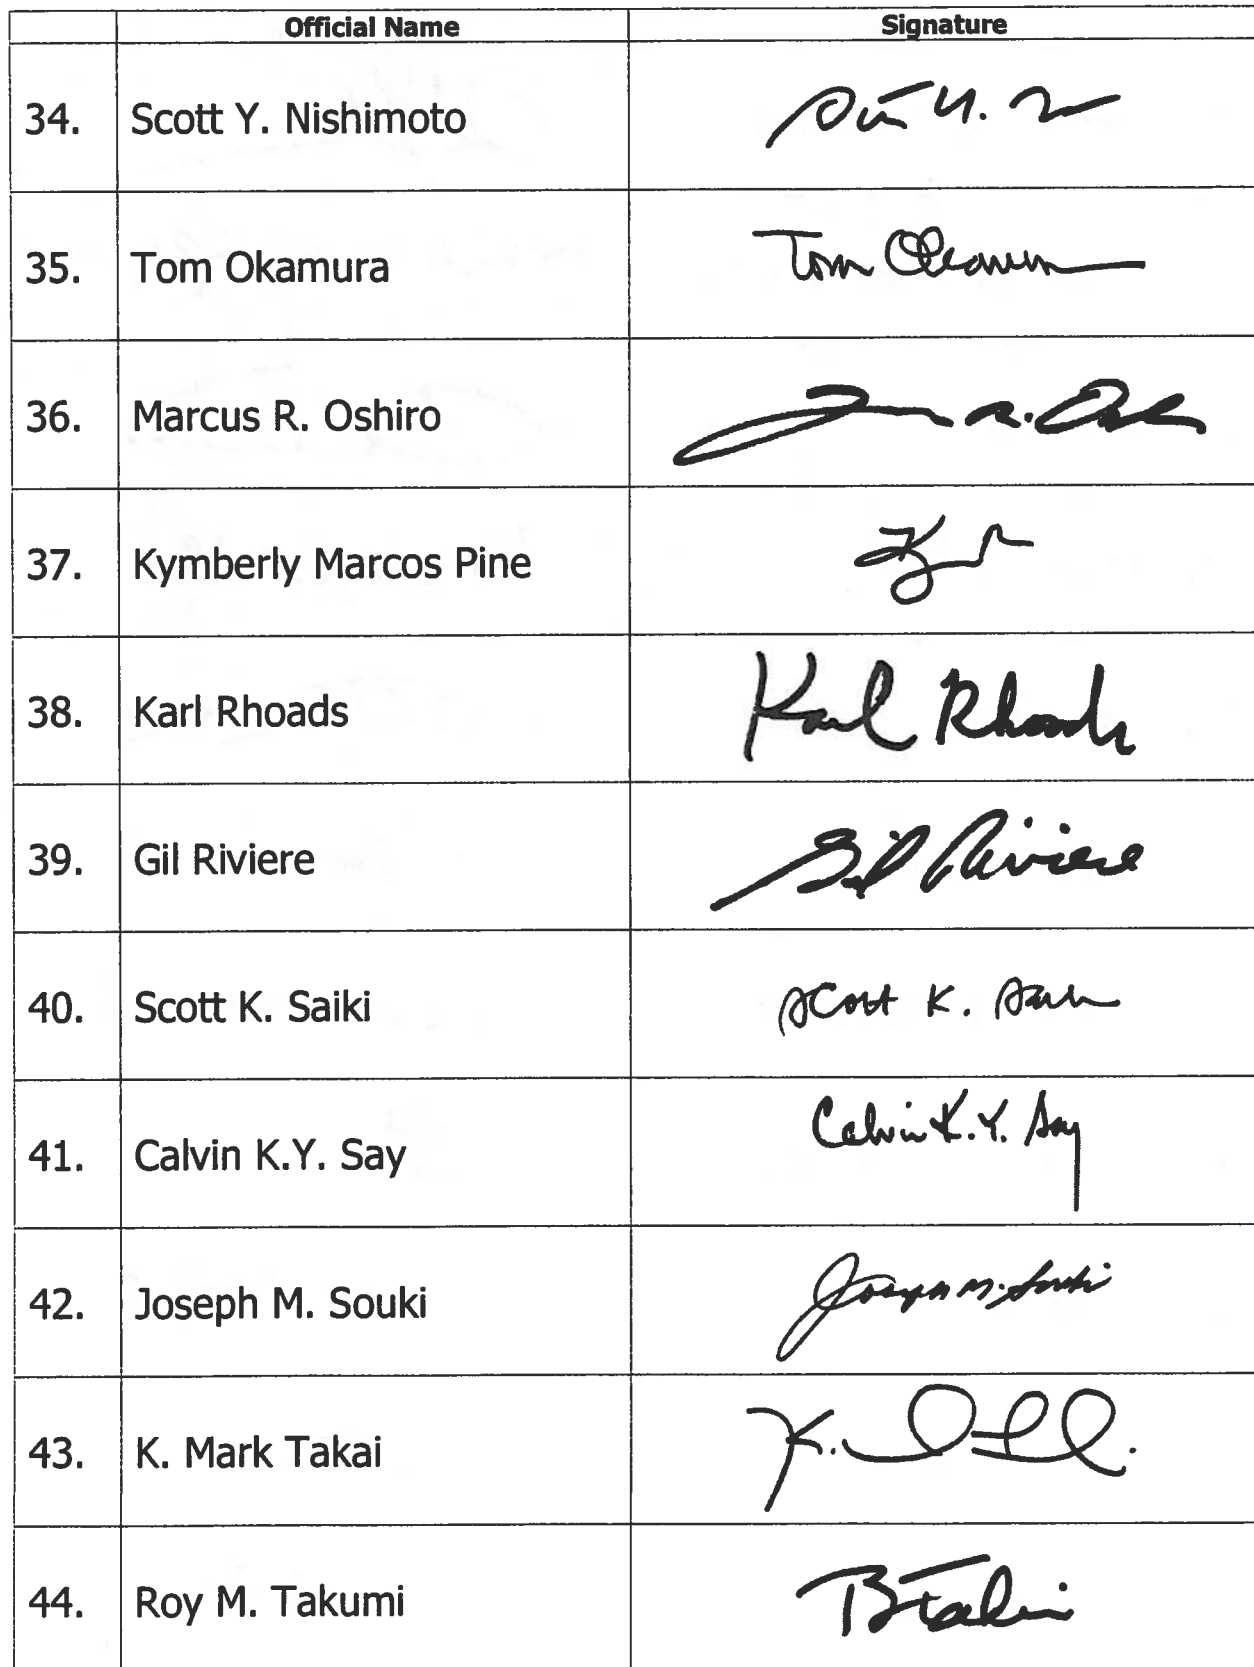 Official Name Signature
34. Scott Y. Nishimoto
35. Tom Okamura Tom
36. Marcus R. Oshiro
37. Kymberly Marcos Pine
38. Karl Rhoads Karl Rhoads
39. Gil Riviere Gil Riviere
40. Scott K. Saiki Scott K.
41. Calvin K.Y. Say Calvin K.Y. Say
42. Joseph M. Souki Joseph M. Souki
43. K. Mark Takai K.
44. Roy M. Takumi